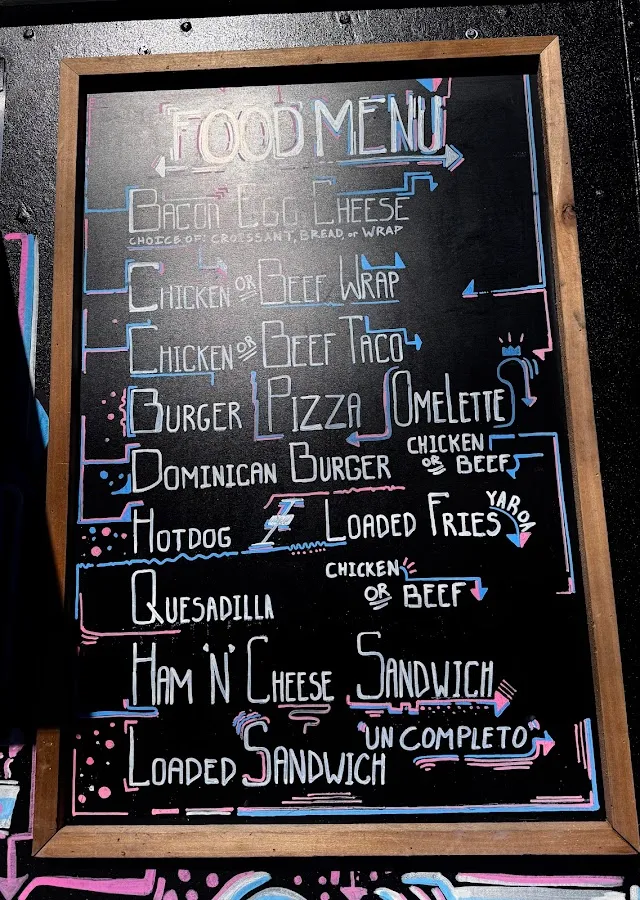 FOOD MENU
BACON EGG CHEESE
CHOICE OF: CROISSANT, BREAD, or WRAP
CHICKEN OR BEEF WRAP
CHICKEN OR BEEF TACO
BURGER PIZZA OMELETTE
DOMINICAN BURGER CHICKEN OR BEEF
HOTDOG LOADED FRIES YAROA
QUESADILLA CHICKEN OR BEEF
HAM 'N' CHEESE SANDWICH
LOADED SANDWICH "UN COMPLETO"